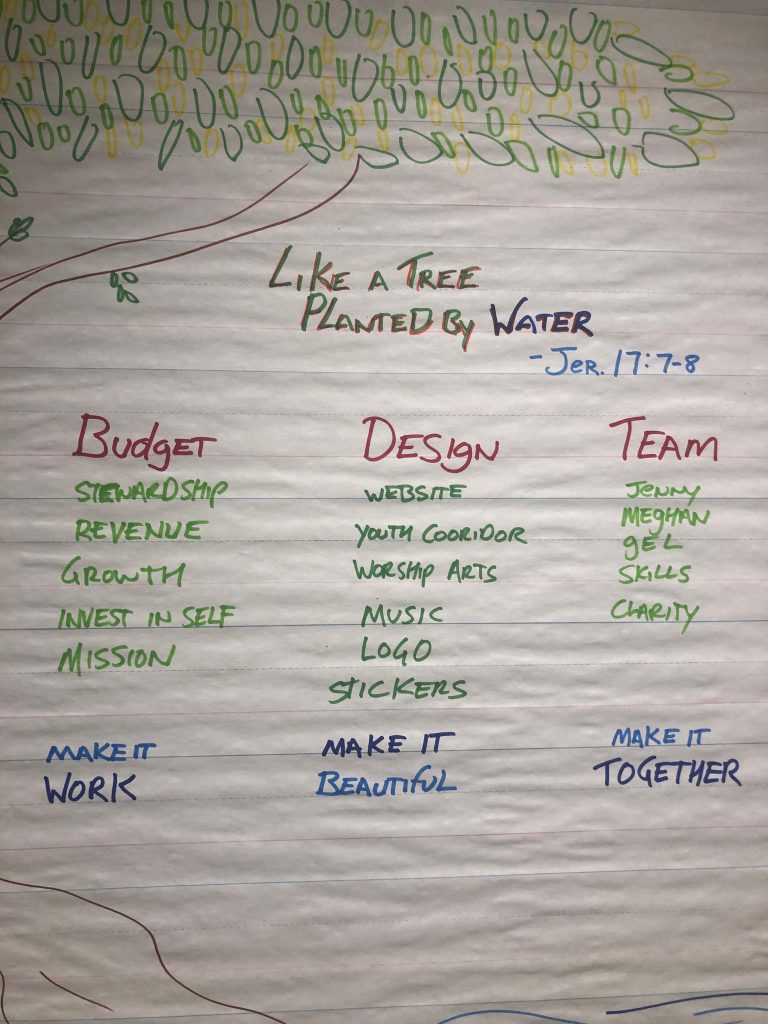 LIKE A TREE
PLANTED By WATER
-JER. 17:7-8
BudgET
STEWARDSHIP
REVENUE
GROWTH
INVEST IN SELF
MISSION
MAKE IT
WORK
DESIgN
WEBSITE
YOUTH COORIDOR
WORSHIP ARTS
MUSIC
LOGO
STICKERS
MAKE IT
BEAUTIFUL
TEAM
JENNY
MEGHAN
gEL
SKILLS
CLARITY
MAKE IT
TOGETHER